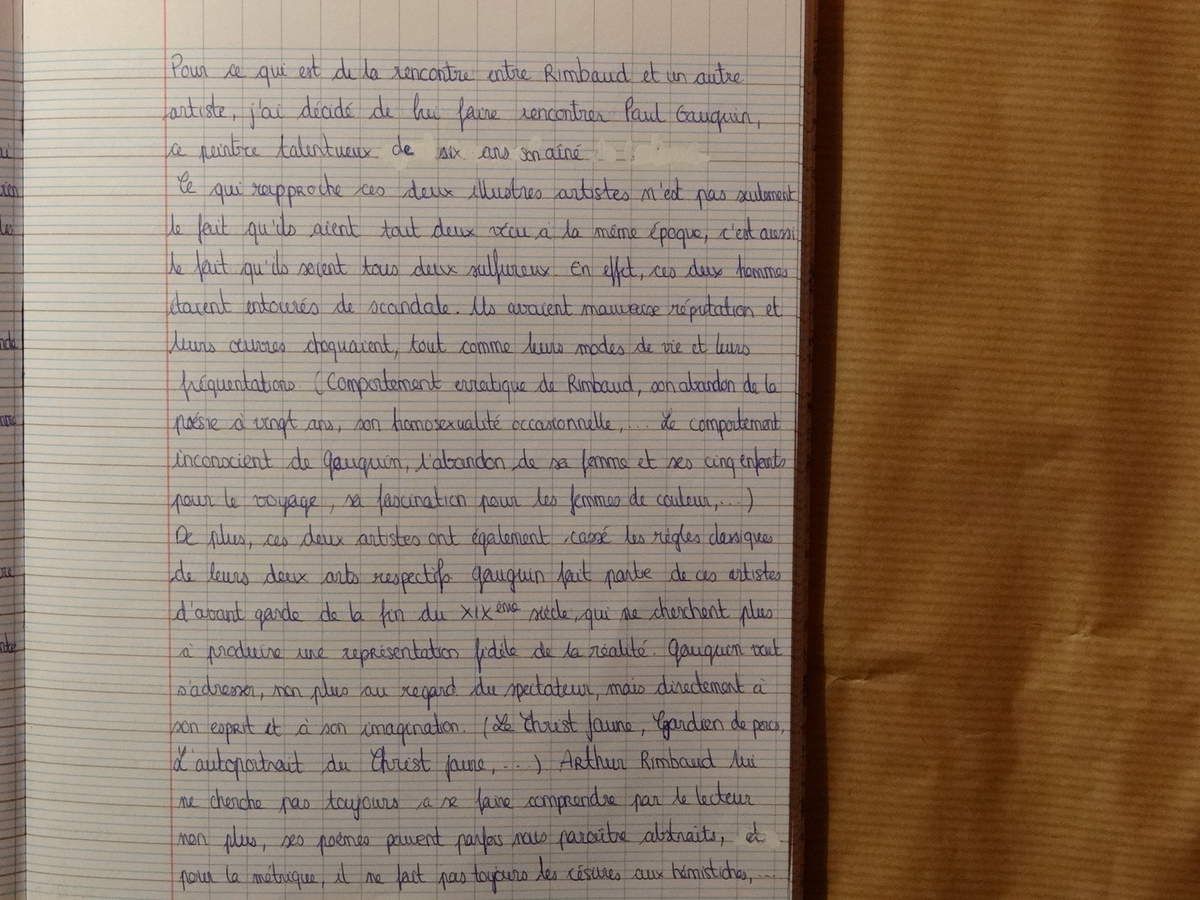 Pour ce qui est de la rencontre entre Rimbaud et un autre
artiste, j'ai décidé de lui faire rencontrer Paul Gauguin,
ce peintre talentueux de six ans son aîné
Ce qui rapproche ces deux illustres artistes n'est pas seulement
le fait qu'ils aient tout deux vécu à la même époque, c'est aussi
le fait qu'ils soient tous deux sulfureux. En effet, ces deux hommes
étaient entourés de scandale. Ils avaient mauvaise réputation et
leurs œuvres choquaient, tout comme leurs modes de vie et leurs
fréquentations (Comportement erratique de Rimbaud, son abandon de la
poésie à vingt ans, son homosexualité occasionnelle,... Le comportement
inconscient de Gauguin, l'abandon de sa femme et ses cinq enfants
pour le voyage, sa fascination pour les femmes de couleur,...)
De plus, ces deux artistes ont également cassé les règles classiques
de leurs deux arts respectifs Gauguin fait partie de ces artistes
d'avant garde de la fin du XIXème siècle, qui ne cherchent plus
à produire une représentation fidèle de la réalité. Gauguin veut
s'adresser, non plus au regard du spectateur, mais directement à
son esprit et à son imagination. (Le Christ Jaune, Gardien de porcs,
L'autoportrait du Christ jaune,...) Arthur Rimbaud lui
ne cherche pas toujours a se faire comprendre par le lecteur
non plus, ses poèmes peuvent parfois nous paraître abstraits, et
pour la métrique, il ne fait pas toujours les césures aux hémistiches,...